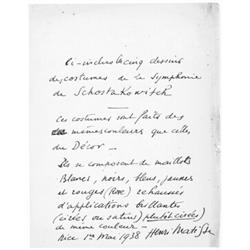 Ci-inclus cinq dessins
des costumes de la Symphonie
de Schostakowitch
Ces costumes sont faits des
mêmes couleurs que celles
du Décor –
Ils se composent de maillots
Blancs, noirs, bleus, jaunes
et rouges (Rose) rehaussés
d'applications brillantes
(cirées ou satins) plutôt cirées)
de même couleur –
Nice 1er Mai 1938 – Henri Matisse